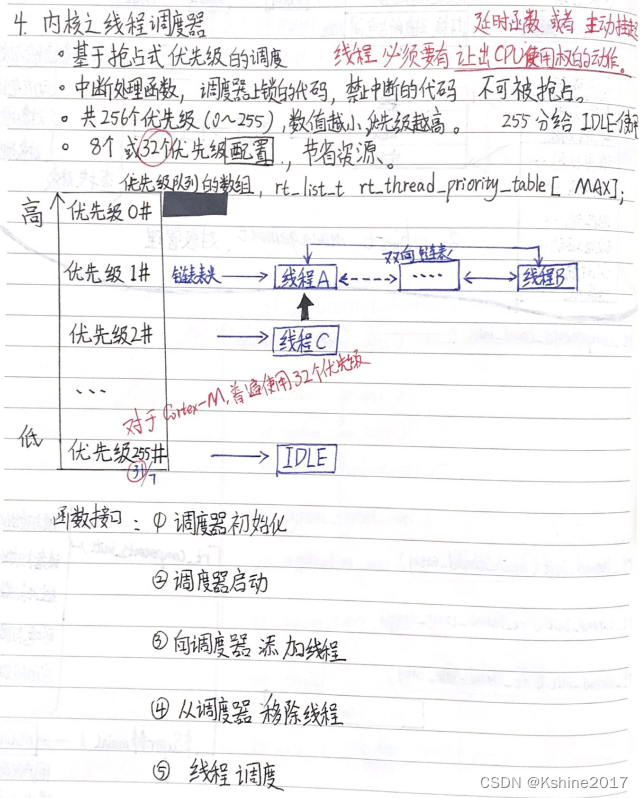 4. 内核之线程调度器
延时函数 或者 主动挂起
• 基于抢占式优先级的调度
线程 必须要有 让出CPU使用权的动作。
• 中断处理函数, 调度器上锁的代码, 禁止中断的代码 不可被抢占。
• 共256个优先级 (0~255), 数值越小, 优先级越高。 255 分给 IDLE
• 8个 或 32个优先级 配置, 节省资源。
优先级队列的数组, rt_list_t rt_thread_priority_table[ MAX];
高 优先级0#
优先级1# 链表表头 线程A 双向链表 .... 线程B
优先级2# 线程C
...
对于 Cortex-M, 普遍使用32个优先级
低 优先级255# IDLE
31/7
函数接口: ① 调度器初始化
② 调度器启动
③ 向调度器 添加线程
④ 从调度器 移除线程
⑤ 线程调度
CSDN @Kshine2017